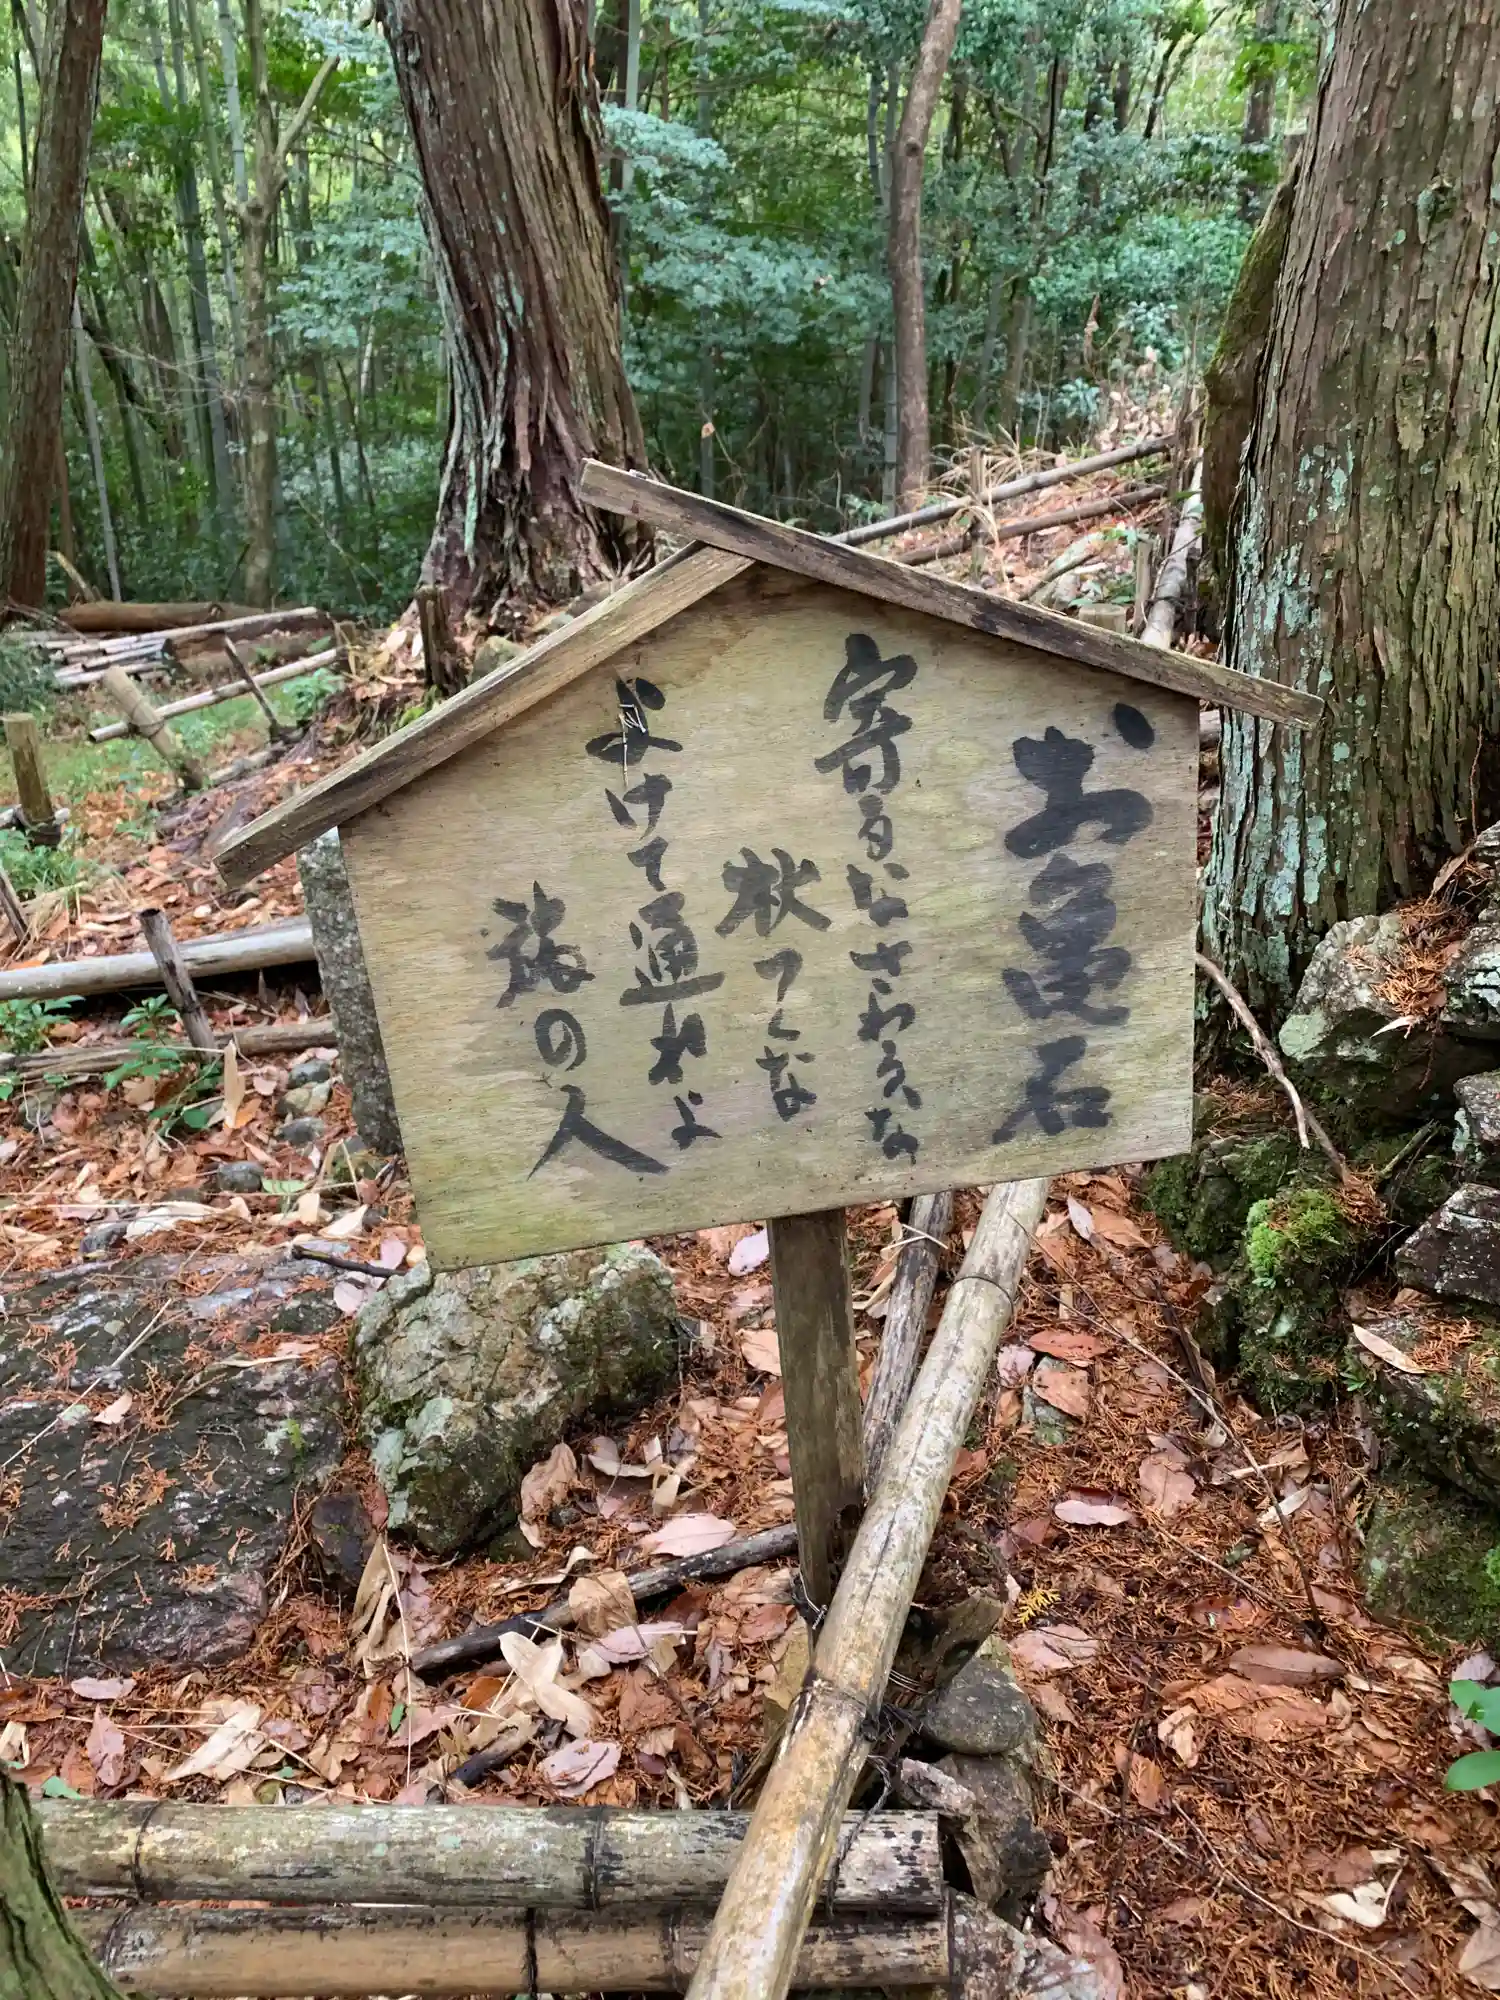 お亀石
寄るなさわるな
杖つくな
よけて通れよ
旅の人